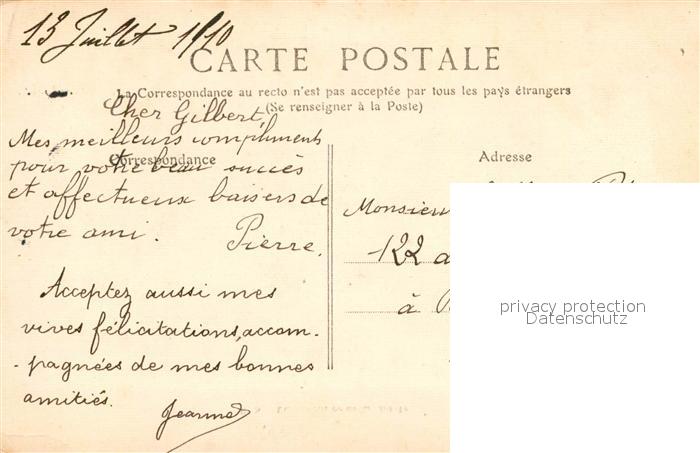 13 Juillet 1910
CARTE POSTALE
La Correspondance au recto n'est pas acceptée par tous les pays étrangers
(Se renseigner à la Poste)
Cher Gilbert,
Mes meilleurs compliments
pour votre beau succès
Correspondance
et affectueux baisers de
votre ami. Pierre.
Acceptez aussi mes
vives félicitations, accom-
-pagnées de mes bonnes
amitiés.
Jeanne
Adresse
Monsieur
122
à
privacy protection
Datenschutz